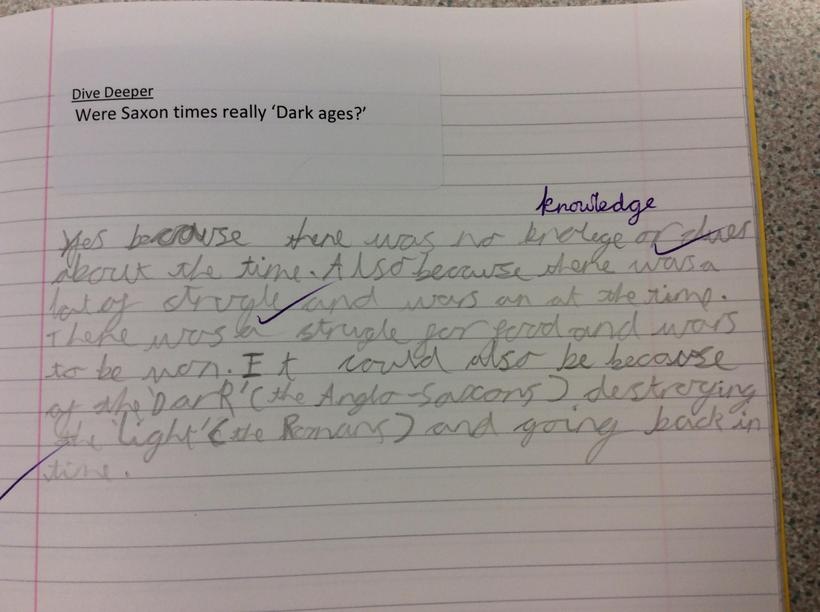 Dive Deeper
Were Saxon times really ‘Dark ages?’
knowledge
Yes because there was no knolege or clues
about the time. Also because there was a
lot of strugle and wars on at the time.
There was a strugle for food and wars
to be won. It could also be because
of the 'Dark' (the Anglo-Saxons) destroying
the 'light' (the Romans) and going back in
time.